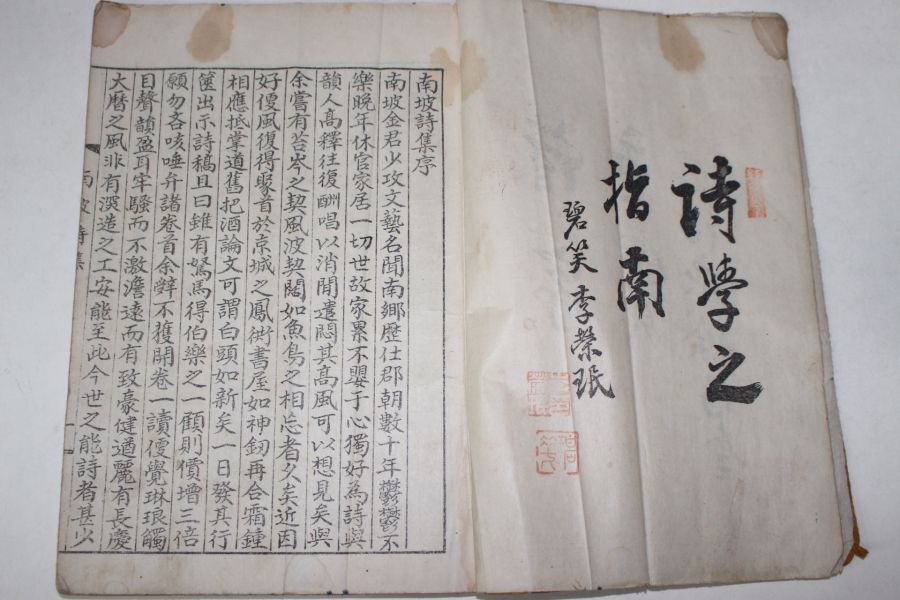 詩學之
指南
碧笑 李榮珉
南坡詩集序
南坡金君少攻文藝名聞南鄉歷仕郡朝數十年鬱鬱不
樂晚年休官家居一切世故家累不嬰于心獨好為詩與
韻人高釋往復酬唱以消閒遣悶其高風可以想見矣與
余嘗有苔岑之契風波契闊如魚鳥之相忘者久矣近因
好便風復得聚首於京城之鳳街書屋如神釰再合霜鍾
相應抵掌道舊把酒論文可謂白頭如新矣一日發其行
篋出示詩稿且曰雖有駑馬得伯樂之一顧則價增三倍
願勿吝咳唾弁諸卷首余辭不獲開卷一讀便覺琳琅觸
目聲韻盈耳牢騷而不激澹遠而有致豪健遒麗有長慶
大曆之風非有深造之工安能至此今世之能詩者甚少
南坡詩集